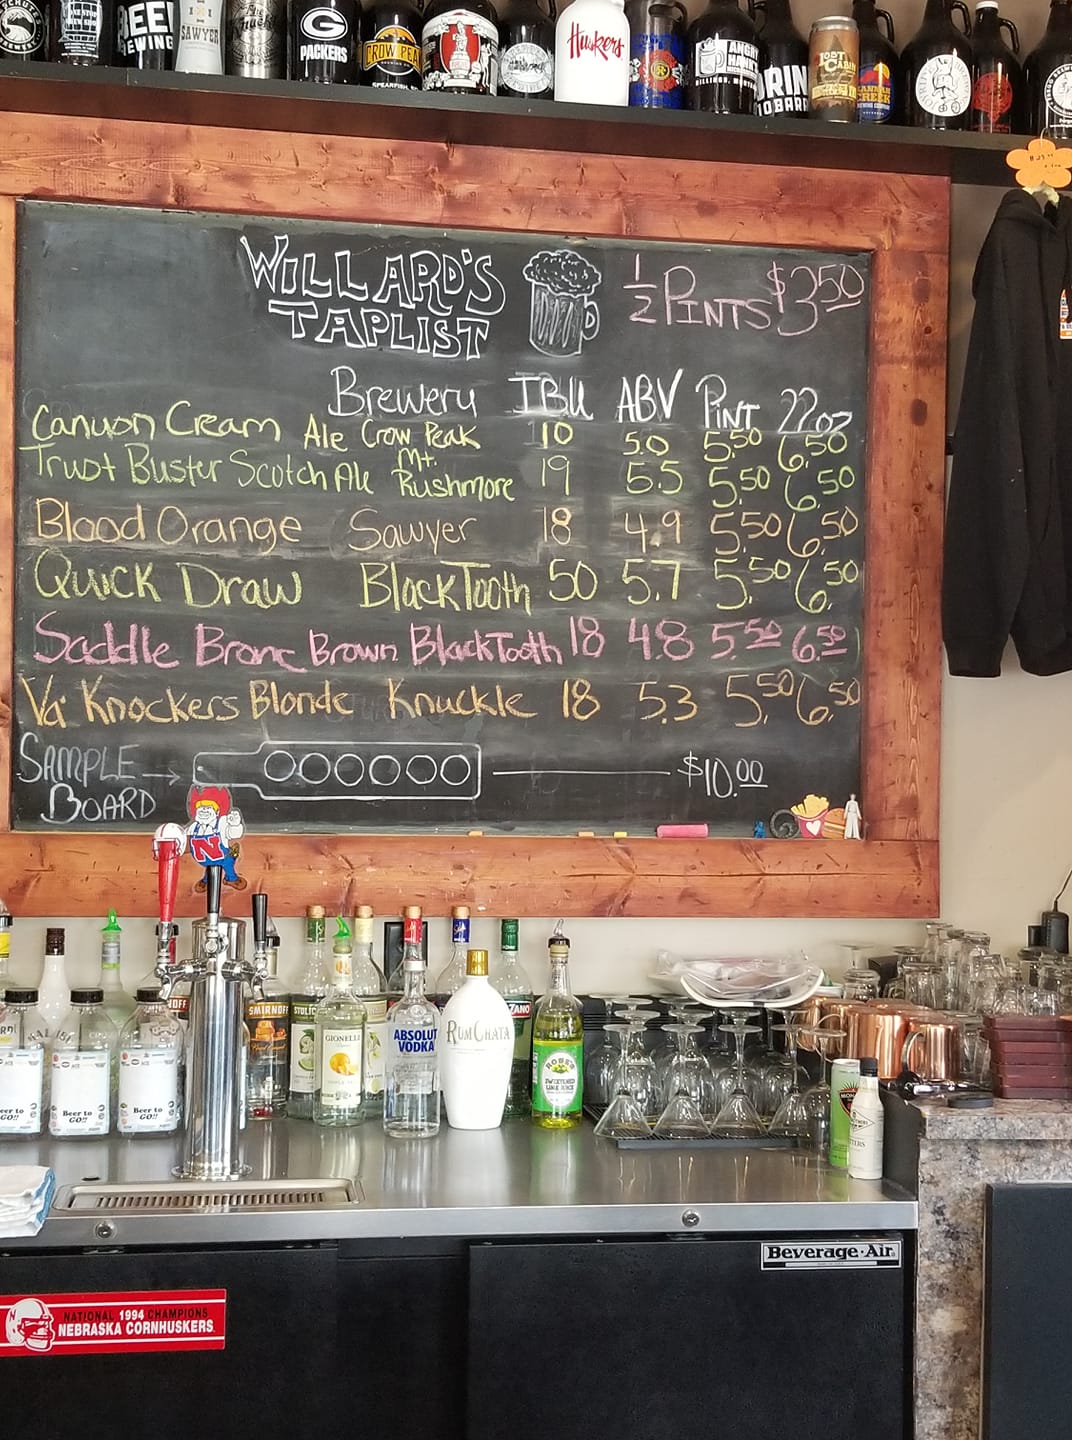 BEER
BREWING
SAWYER
Knuckle
G
PACKERS
CROW PEAK
SPEARFISH,
Huskers
ANGRY
HANK'S
BILLINGS, MONTANA
DRINK
LOST
CABIN
HANNAH
CREEK
WILLARD'S
TAPLIST
1/2 PINTS $3.50
Brewery IBU ABV PINT 22oz
Canyon Cream Ale Crow Peak 10 5.0 5.50 6.50
Trust Buster Scotch Ale Mt. Rushmore 19 5.5 5.50 6.50
Blood Orange Sawyer 18 4.9 5.50 6.50
Quick Draw BlackTooth 50 5.7 5.50 6.50
Saddle Bronc Brown BlackTooth 18 4.8 5.50 6.50
Va' Knockers Blonde Knuckle 18 5.3 5.50 6.50
SAMPLE BOARD $10.00
N
SMIRNOFF
STOLICH
GIONELLI
ABSOLUT
VODKA
RUMCHATA
ROSE'S
SWEETENED
LIME JUICE
Beer to
GO!!
Beer to
GO!!
Beer to
GO!!
Beverage-Air
NATIONAL 1994 CHAMPIONS
NEBRASKA CORNHUSKERS